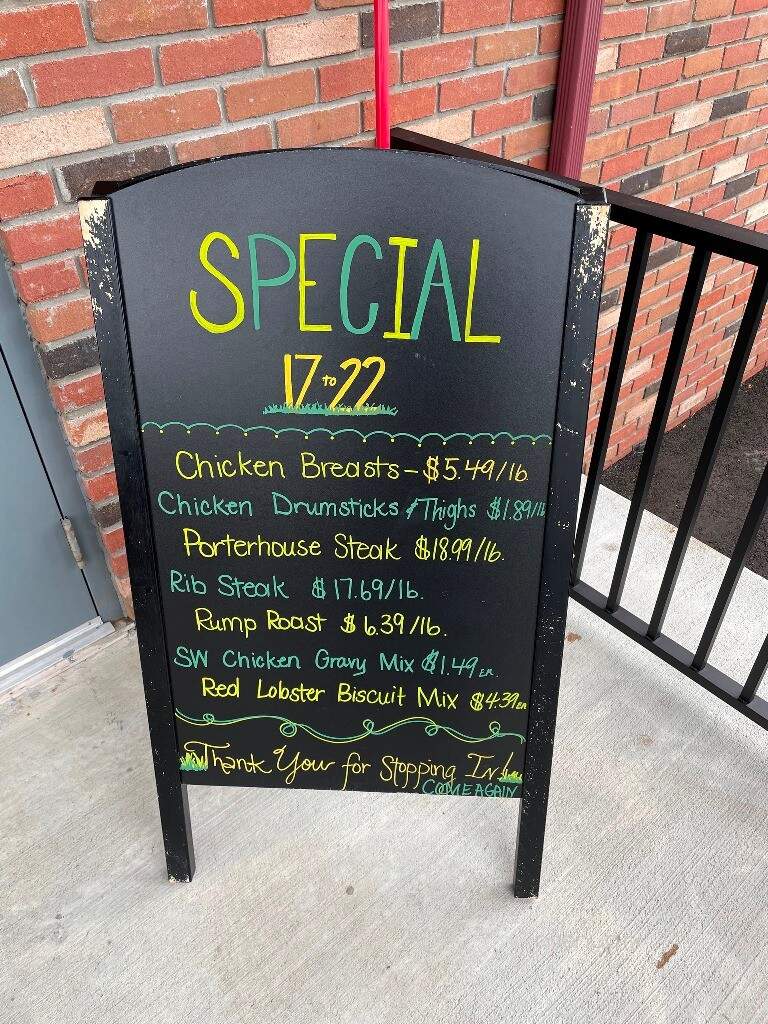 SPECIAL
17 to 22
Chicken Breasts - $5.49/lb.
Chicken Drumsticks & Thighs $1.89/lb
Porterhouse Steak $18.99/lb.
Rib Steak $17.69/lb.
Rump Roast $6.39/lb.
SW Chicken Gravy Mix $1.49 EA.
Red Lobster Biscuit Mix $4.39 EA
Thank You for Stopping In!
COME AGAIN